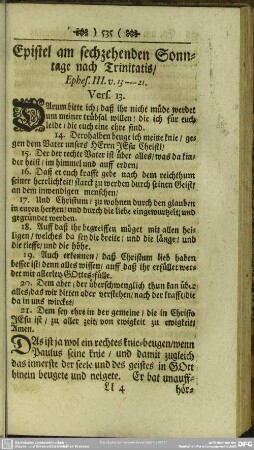 535
Epistel am sechzehenden Sonn-
tage nach Trinitatis/
Ephes. III. v. 13—21.
Vers. 13.
DArum bitte ich/ daß ihr nicht müde werdet
um meiner trübsal willen/ die ich für euch
leide/ die euch eine ehre sind.
14. Derohalben beuge ich meine knie/ ge-
gen dem Vater unsers HErrn JEsu Christi/
15. Der der rechte Vater ist über alles/ was da kin-
der heist/ im himmel und auff erden/
16. Daß er euch krafft gebe nach dem reichthum
seiner herrlichkeit/ starck zu werden durch seinen Geist/
an dem inwendigen menschen/
17. Und Christum/ zu wohnen durch den glauben
in euren hertzen/ und durch die liebe eingewurtzelt/ und
gegründet werden.
18. Auff daß ihr begreiffen müget mit allen hei-
ligen/ welches da sey die breite/ und die länge/ und
die tieffe/ und die höhe.
19. Auch erkennen/ daß Christum lieb haben
besser ist/ denn alles wissen/ auff daß ihr erfüllet wer-
det mit allerley GOttes-fülle.
20. Dem aber/ der überschwenglich thun kan über
alles/ das wir bitten oder verstehen/ nach der krafft/ die
da in uns wircket/
21. Dem sey ehre in der gemeine/ die in Christo
JEsu ist/ zu aller zeit/ von ewigkeit zu ewigkeit/
Amen.
DAs ist ja wol ein rechtes knie-beugen/ wenn
Paulus seine knie/ und damit zugleich
das innerste der seele und des geistes in GOtt
hinein beugete und neigete. Er bat unauff-
Ll 4
hör-